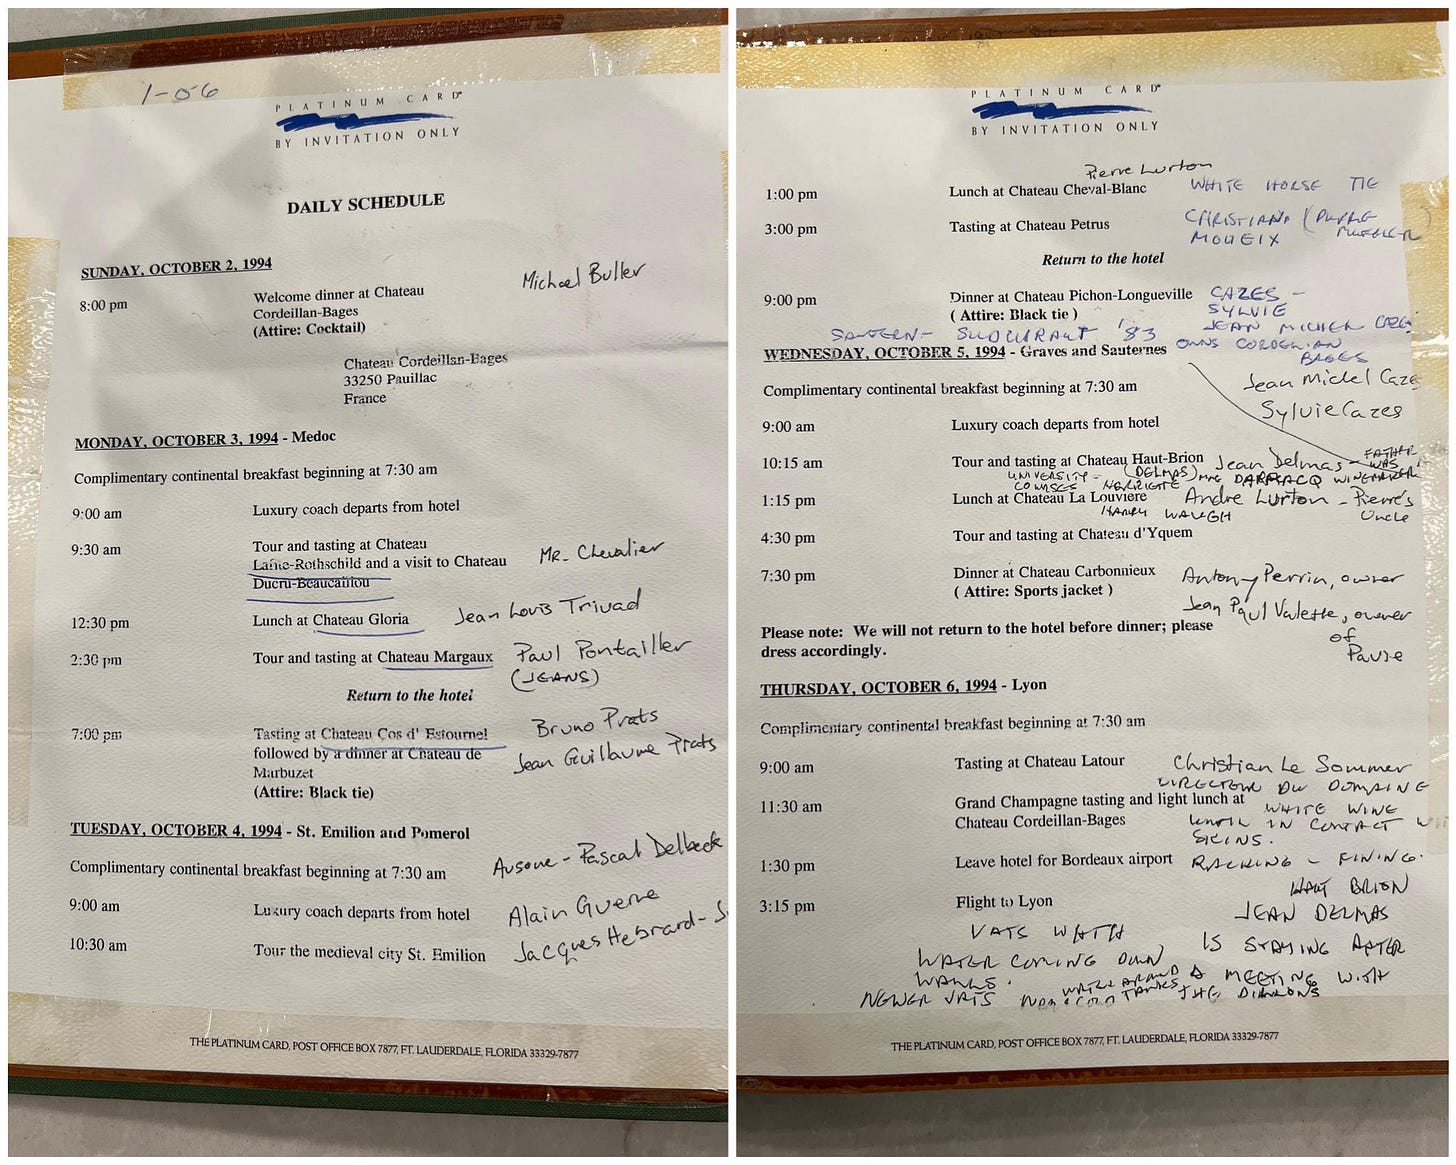 1-06
PLATINUM CARD®
BY INVITATION ONLY
DAILY SCHEDULE
SUNDAY, OCTOBER 2, 1994
Michael Buller
8:00 pm Welcome dinner at Chateau
Cordeillan-Bages
(Attire: Cocktail)
Chateau Cordeillan-Bages
33250 Pauillac
France
MONDAY, OCTOBER 3, 1994 - Medoc
Complimentary continental breakfast beginning at 7:30 am
9:00 am Luxury coach departs from hotel
9:30 am Tour and tasting at Chateau
Mr. Chevalier
Lafite-Rothschild and a visit to Chateau
Ducru-Beaucaillou
12:30 pm Lunch at Chateau Gloria Jean Louis Trivad
2:30 pm Tour and tasting at Chateau Margaux Paul Pontailler
(JEANS)
Return to the hotel
7:00 pm Tasting at Chateau Cos d' Estournel Bruno Prats
followed by a dinner at Chateau de Jean Guillaume Prats
Marbuzet
(Attire: Black tie)
TUESDAY, OCTOBER 4, 1994 - St. Emilion and Pomerol
Complimentary continental breakfast beginning at 7:30 am Ausone - Pascal Delbeck
9:00 am Luxury coach departs from hotel Alain Guerne
10:30 am Tour the medieval city St. Emilion Jacques Hebrard -
THE PLATINUM CARD, POST OFFICE BOX 7877, FT. LAUDERDALE, FLORIDA 33329-7877
PLATINUM CARD®
BY INVITATION ONLY
Pierre Lurton
1:00 pm Lunch at Chateau Cheval-Blanc WHITE HORSE TIE
3:00 pm Tasting at Chateau Petrus CHRISTIAN
MOUEIX
Return to the hotel
9:00 pm Dinner at Chateau Pichon-Longueville CAZES -
( Attire: Black tie ) SYLVIE
SAUTERN - '83 JEAN MICHEL CAZE
WEDNESDAY, OCTOBER 5, 1994 - Graves and Sauternes OWNS CORDEILLAN
BAGES
Complimentary continental breakfast beginning at 7:30 am Jean Michel Caze
Sylvie Cazes
9:00 am Luxury coach departs from hotel
10:15 am Tour and tasting at Chateau Haut-Brion Jean Delmas - FATHER
WAS
UNIVERSITY - (DELMAS) WINEMAKER
COURSES
1:15 pm Lunch at Chateau La Louviere Andre Lurton - Pierre's
Uncle
HARRY WAUGH
4:30 pm Tour and tasting at Chateau d'Yquem
7:30 pm Dinner at Chateau Carbonnieux Antony Perrin, owner
( Attire: Sports jacket )
Jean Paul Valette, owner
of
Pavie
Please note: We will not return to the hotel before dinner; please
dress accordingly.
THURSDAY, OCTOBER 6, 1994 - Lyon
Complimentary continental breakfast beginning at 7:30 am
9:00 am Tasting at Chateau Latour Christian Le Sommer
DIRECTEUR DU DOMAINE
11:30 am Grand Champagne tasting and light lunch at
Chateau Cordeillan-Bages
WHITE WINE
IN CONTACT
SKINS.
1:30 pm Leave hotel for Bordeaux airport RACKING - FINING.
HAUT BRION
3:15 pm Flight to Lyon JEAN DELMAS
VATS WITH
IS STAYING AFTER
WATER COMING DOWN
WALLS.
A MEETING WITH
NEWER VATS
THE DILLONS
THE PLATINUM CARD, POST OFFICE BOX 7877, FT. LAUDERDALE, FLORIDA 33329-7877